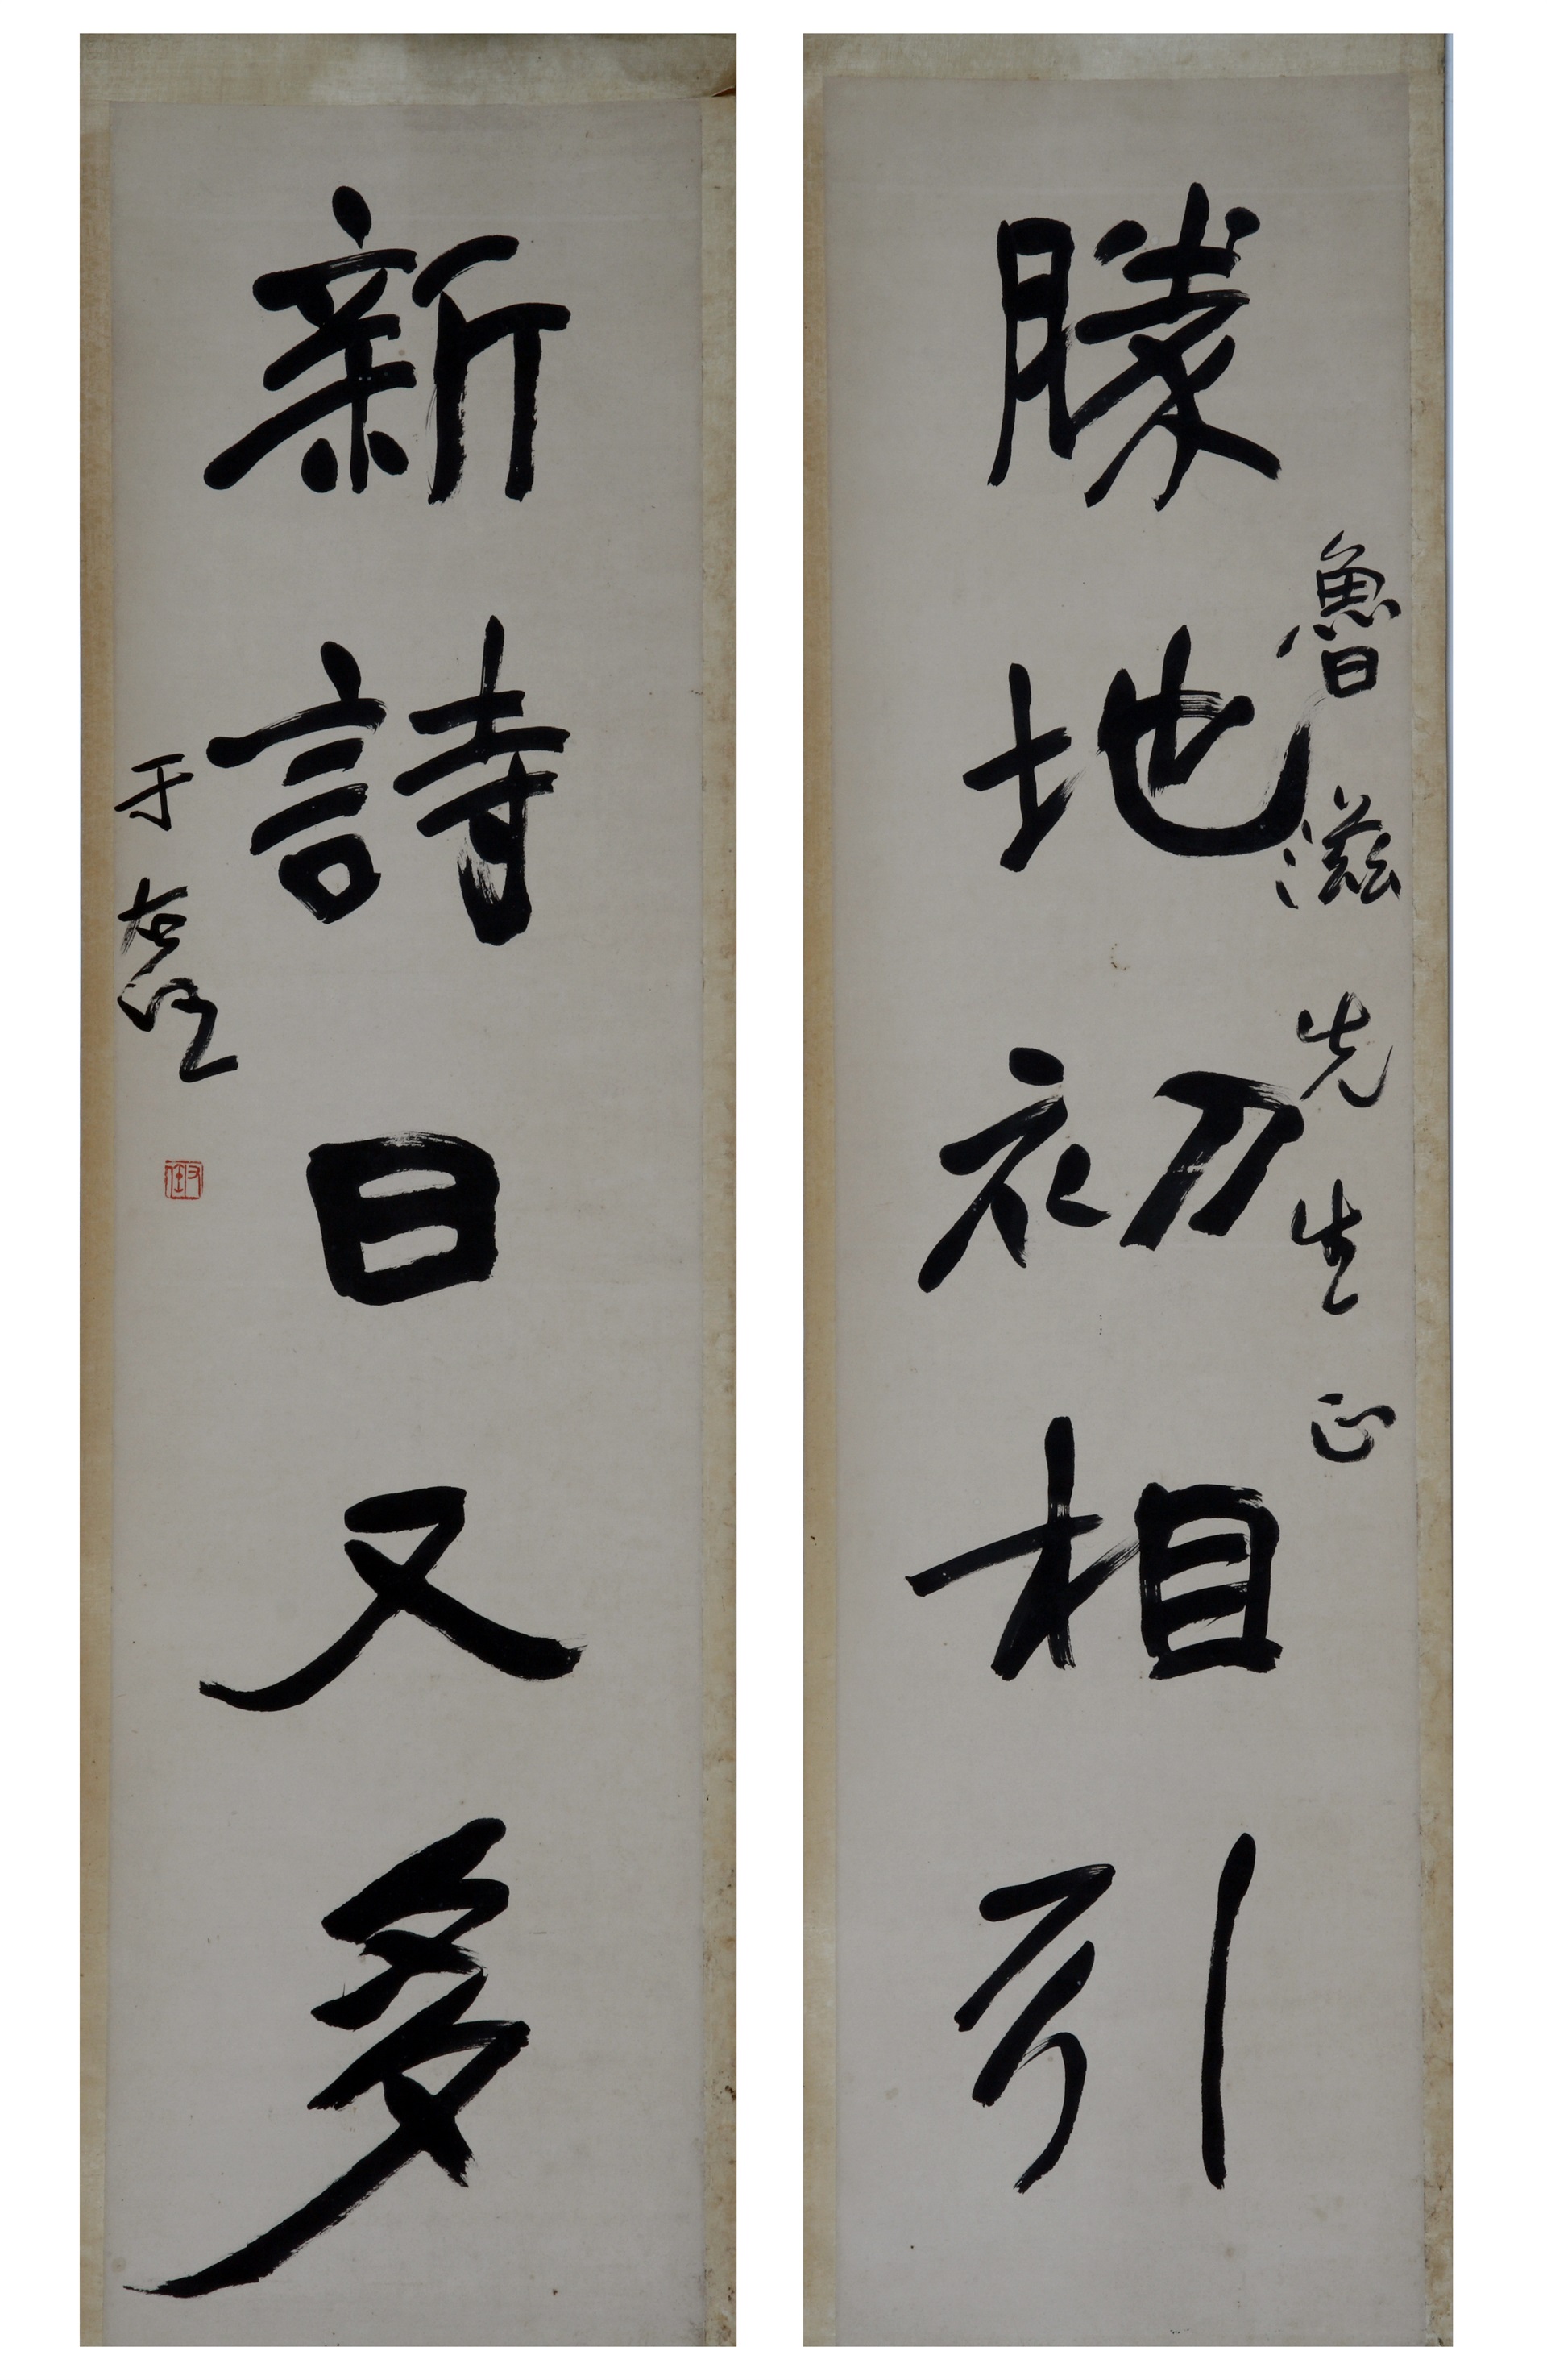 魯滋先生正
勝地初相引
新詩日又多
于右任
右任